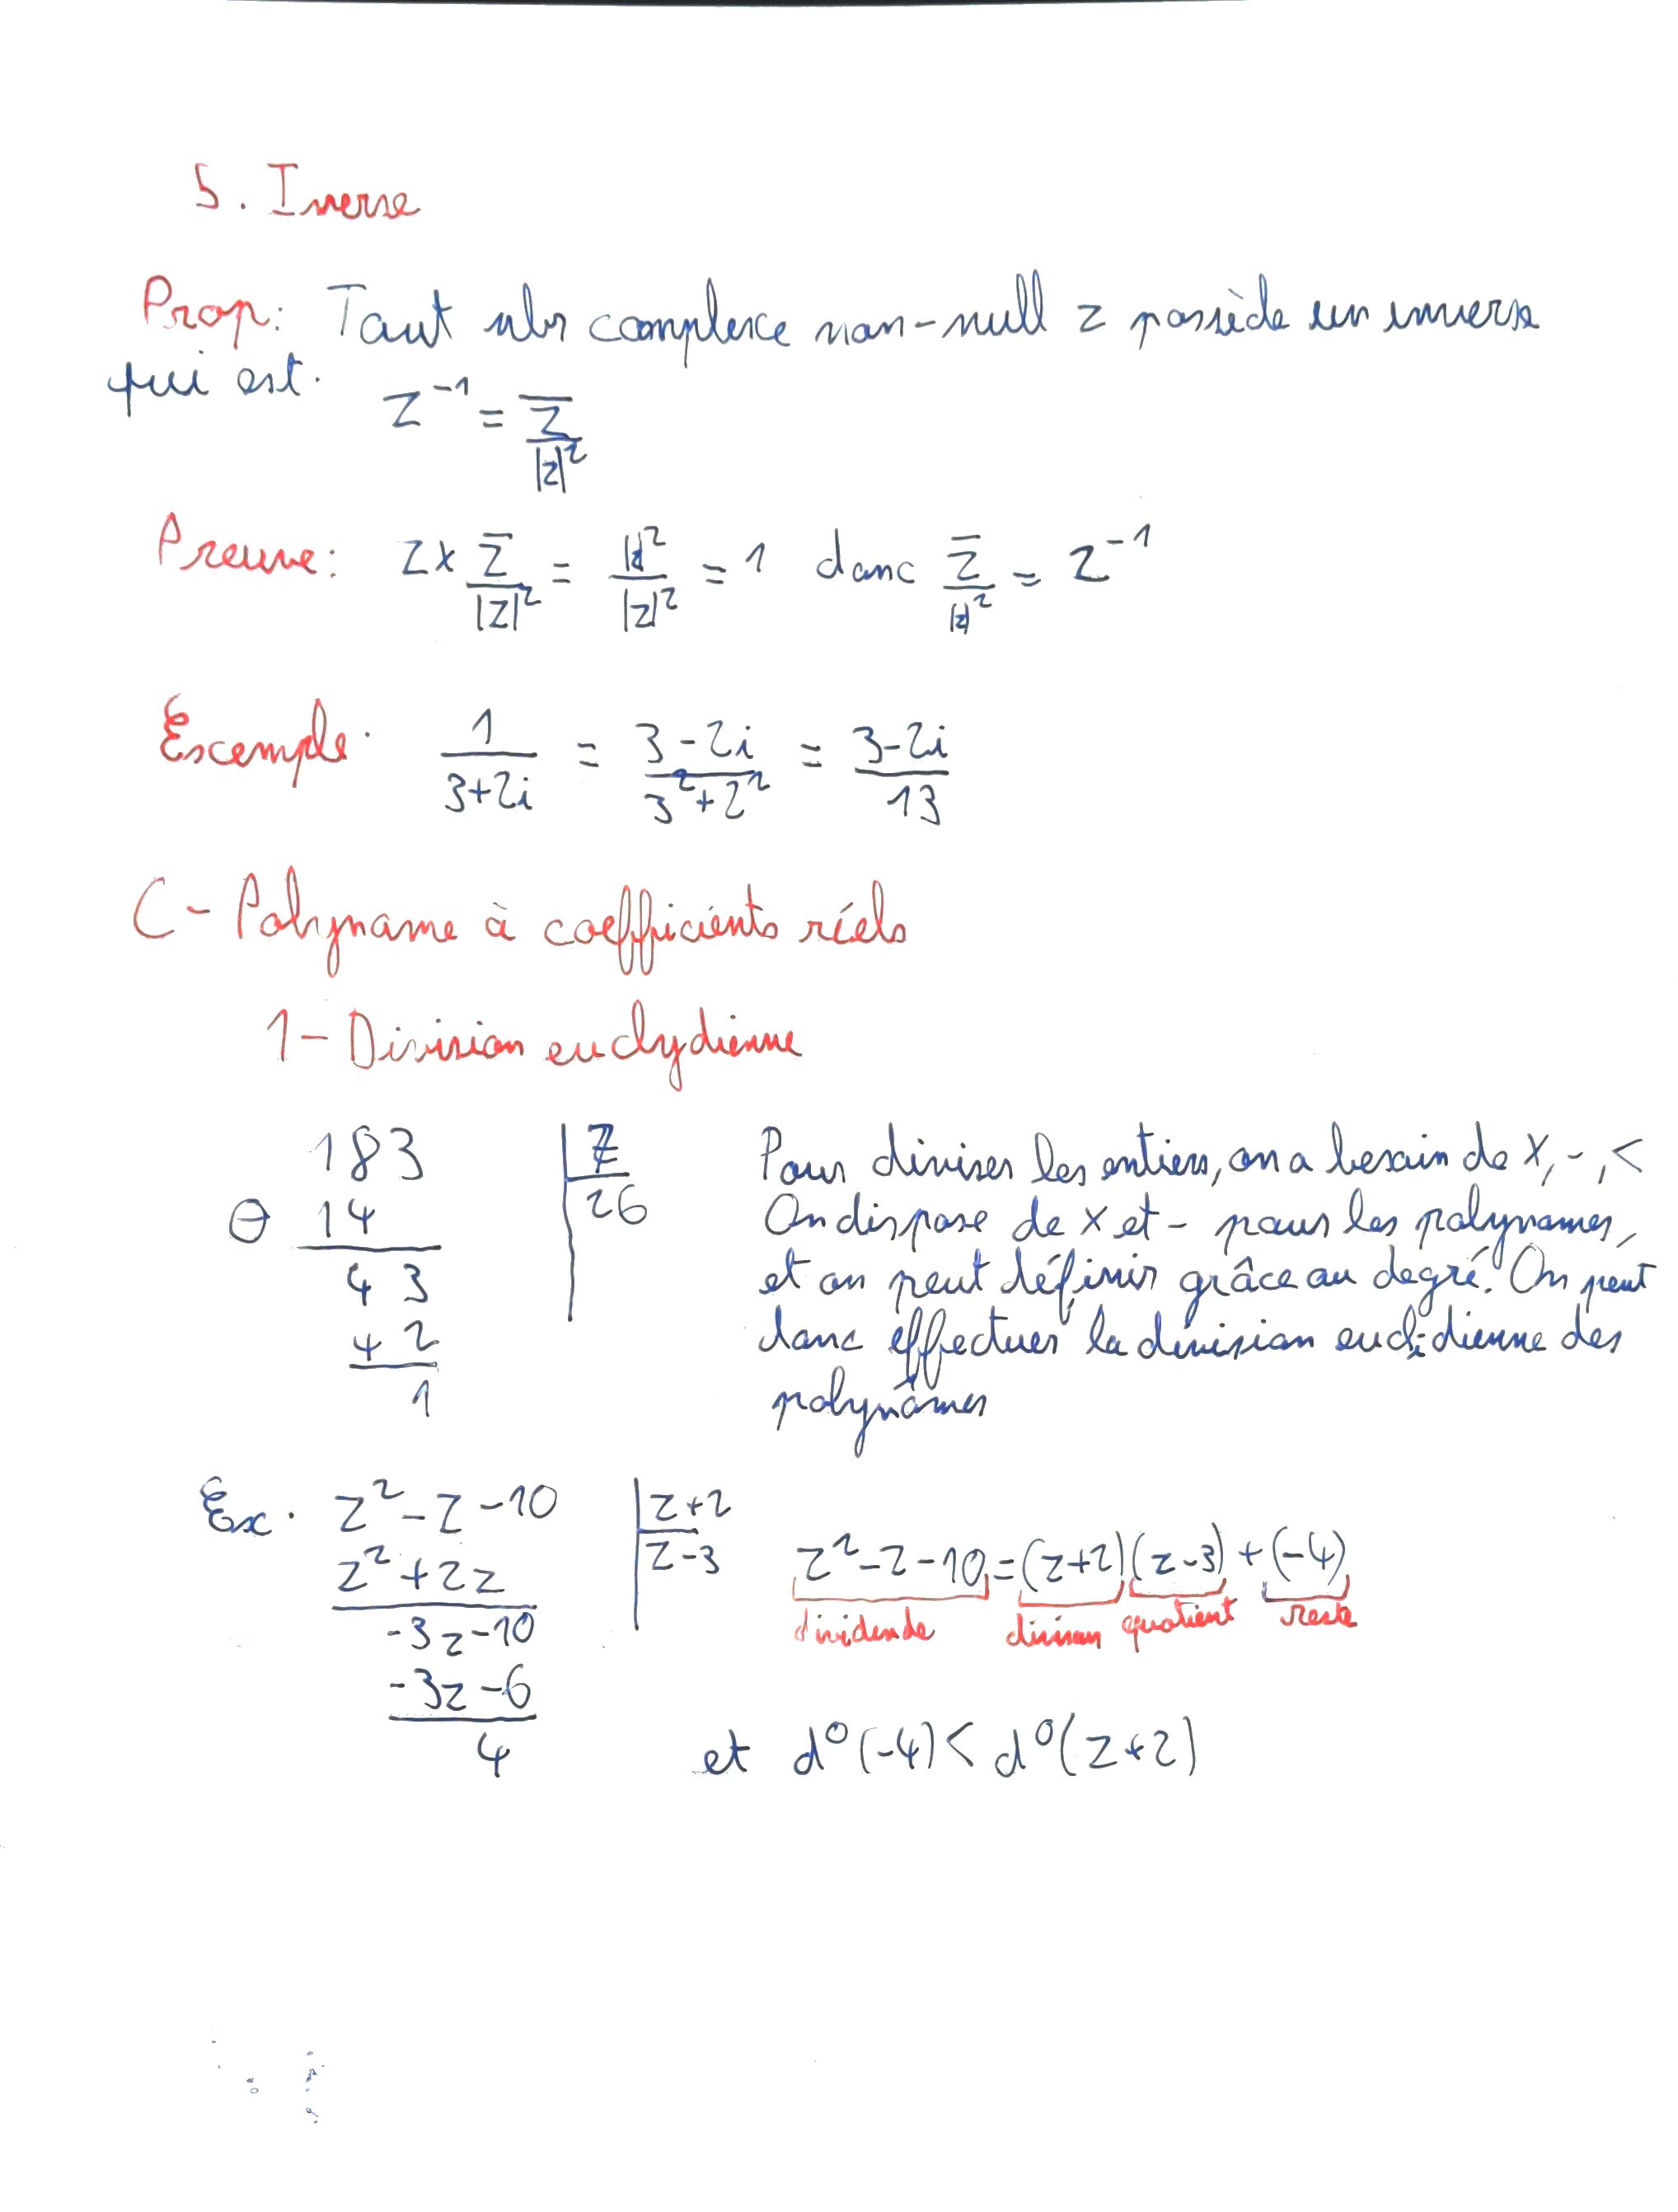 5. Inverse
Prop: Tout nbr complexe non-null z possède un inverse
qui est. z⁻¹ = z̄/|z|²
Preuve: z × z̄/|z|² = |z|²/|z|² = 1 donc z̄/|z|² = z⁻¹
Exemple. 1/(3+2i) = (3-2i)/(3²+2²) = (3-2i)/13
C- Polynome à coefficients réels
1- Division euclydienne
183 | 7
⊖ 14 | 26
43
42
1
Pour diviser les entiers, on a besoin de ×, -, <
On dispose de × et - pour les polynomes,
et on peut définir grâce au degré. On peut
donc effectuer la division euclidienne des
polynômes
Ex. z²-z-10 | z+2
z²+2z | z-3
-3z-10
-3z-6
4
z²-z-10 = (z+2)(z-3)+(-4)
dividende quotient reste
et d°(-4) < d°(z+2)